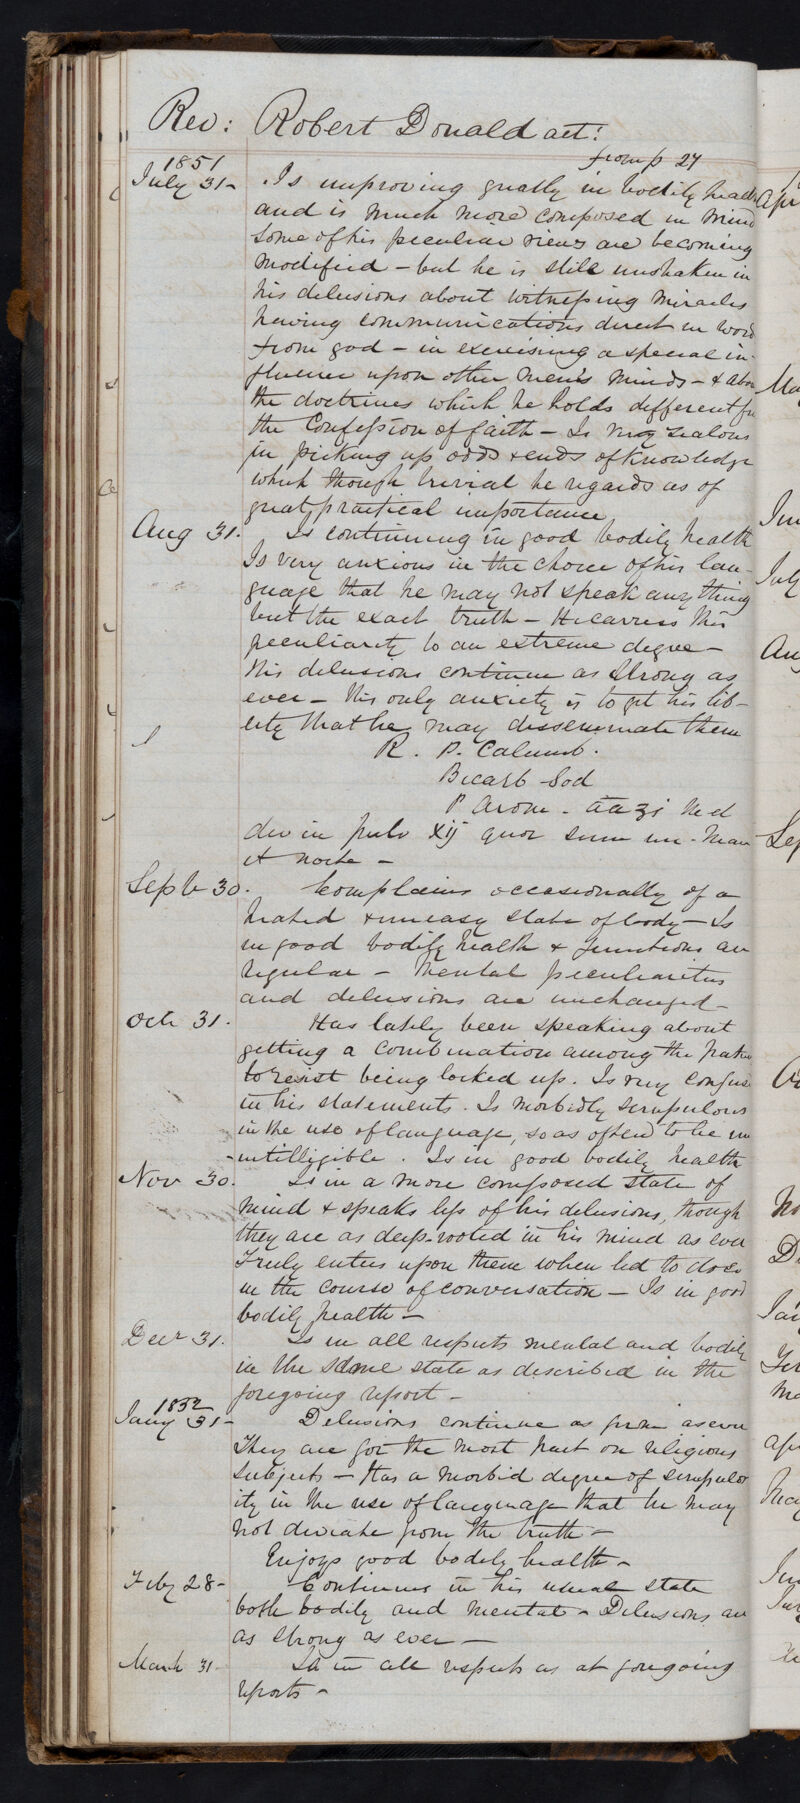 Rev: Robert Donald aet:
from p 27
1851
July 31 - Is improving greatly in bodily health
and is much more composed in mind
Some of his peculiar views are becoming
modified - but he is still unshaken in
his delusions about witnessing miracles
having communications direct in word
from god - in exercising a special in-
fluence upon other men's minds - & about
the doctrines which he holds different fr
the Confession of faith - Is very zealous
in picking up odds & ends of knowledge
which though trivial he regards as of
great practical importance
Aug 31. Is continuing in good bodily health
Is very anxious in the choice of his lan-
guage that he may not speak any thing
but the exact truth - He carries this
peculiarity to an extreme degree -
His delusions continue as strong as
ever - His only anxiety is to get his lib-
erty that he may disseminate them
R. P. Calumb.
Bicarb Sod
P Arom - aa ʒi
div in pulv xij quor sum un. Mane
et nocte -
Septr 30. Complains occasionally of a
heated & uneasy state of body - Is
in good bodily health & functions are
regular - Mental peculiarities
and delusions are unchanged -
Octr 31. Has lately been speaking about
getting a combination among the
to resist being locked up. Is very confuse
in his statements. Is morbidly scrupulous
in the use of language, so as often to be un
-intelligible. Is in good bodily health
Nov 30. Is in a more composed state of
mind & speaks less of his delusions, though
they are as deep-rooted in his mind as ever
Freely enters upon them when led to do so
in the course of conversation - Is in good
bodily health -
Decr 31. Is in all respects mental and bodily
in the same state as described in the
foregoing report -
1852
Jany 31 - Delusions continue as firm as ever
They are for the most part on religious
subjects - Has a morbid degree of scrupulos
ity in the use of language that he may
not deviate from the truth -
Enjoys good bodily health -
Feby 28 - Continues in his usual state
both bodily and mental - Delusions are
as strong as ever -
March 31 - Is in all respects as at foregoing
reports -